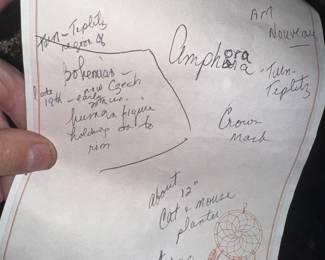 Turn-Teplitz
region of
bohemian -
now Czech
Late 19th - early
20th cen.
human figure
holding on to
rim
Art
Nouveau
Amphora
ora
- Turn-
Teplitz
Crown
Mark
About
12"
Cat & mouse
planter